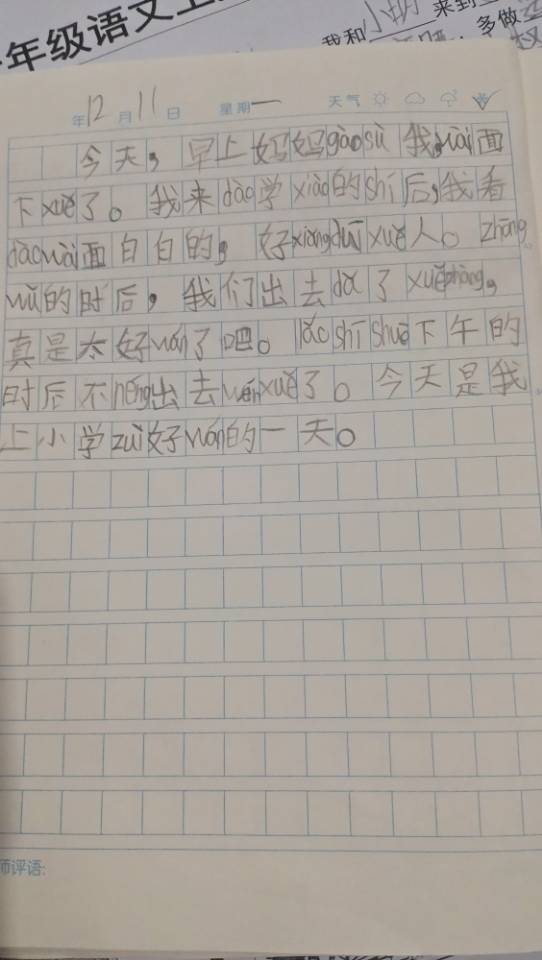 年级语文上
我和小 来到
多做
年12月11日 星期一 天气
今天，早上妈妈gàosù我wài面
下xuě了。我来dào学xiào的shí后，我看
dàowài面白白的，好xiàngduīxuě人。zhōng
wǔ的时后，我们出去dǎ了xuězhàng，
真是太好wán了吧。lǎoshīshuō下午的
时后不néng出去wánxuě了。今天是我
上小学zuì好wán的一天。
师评语: